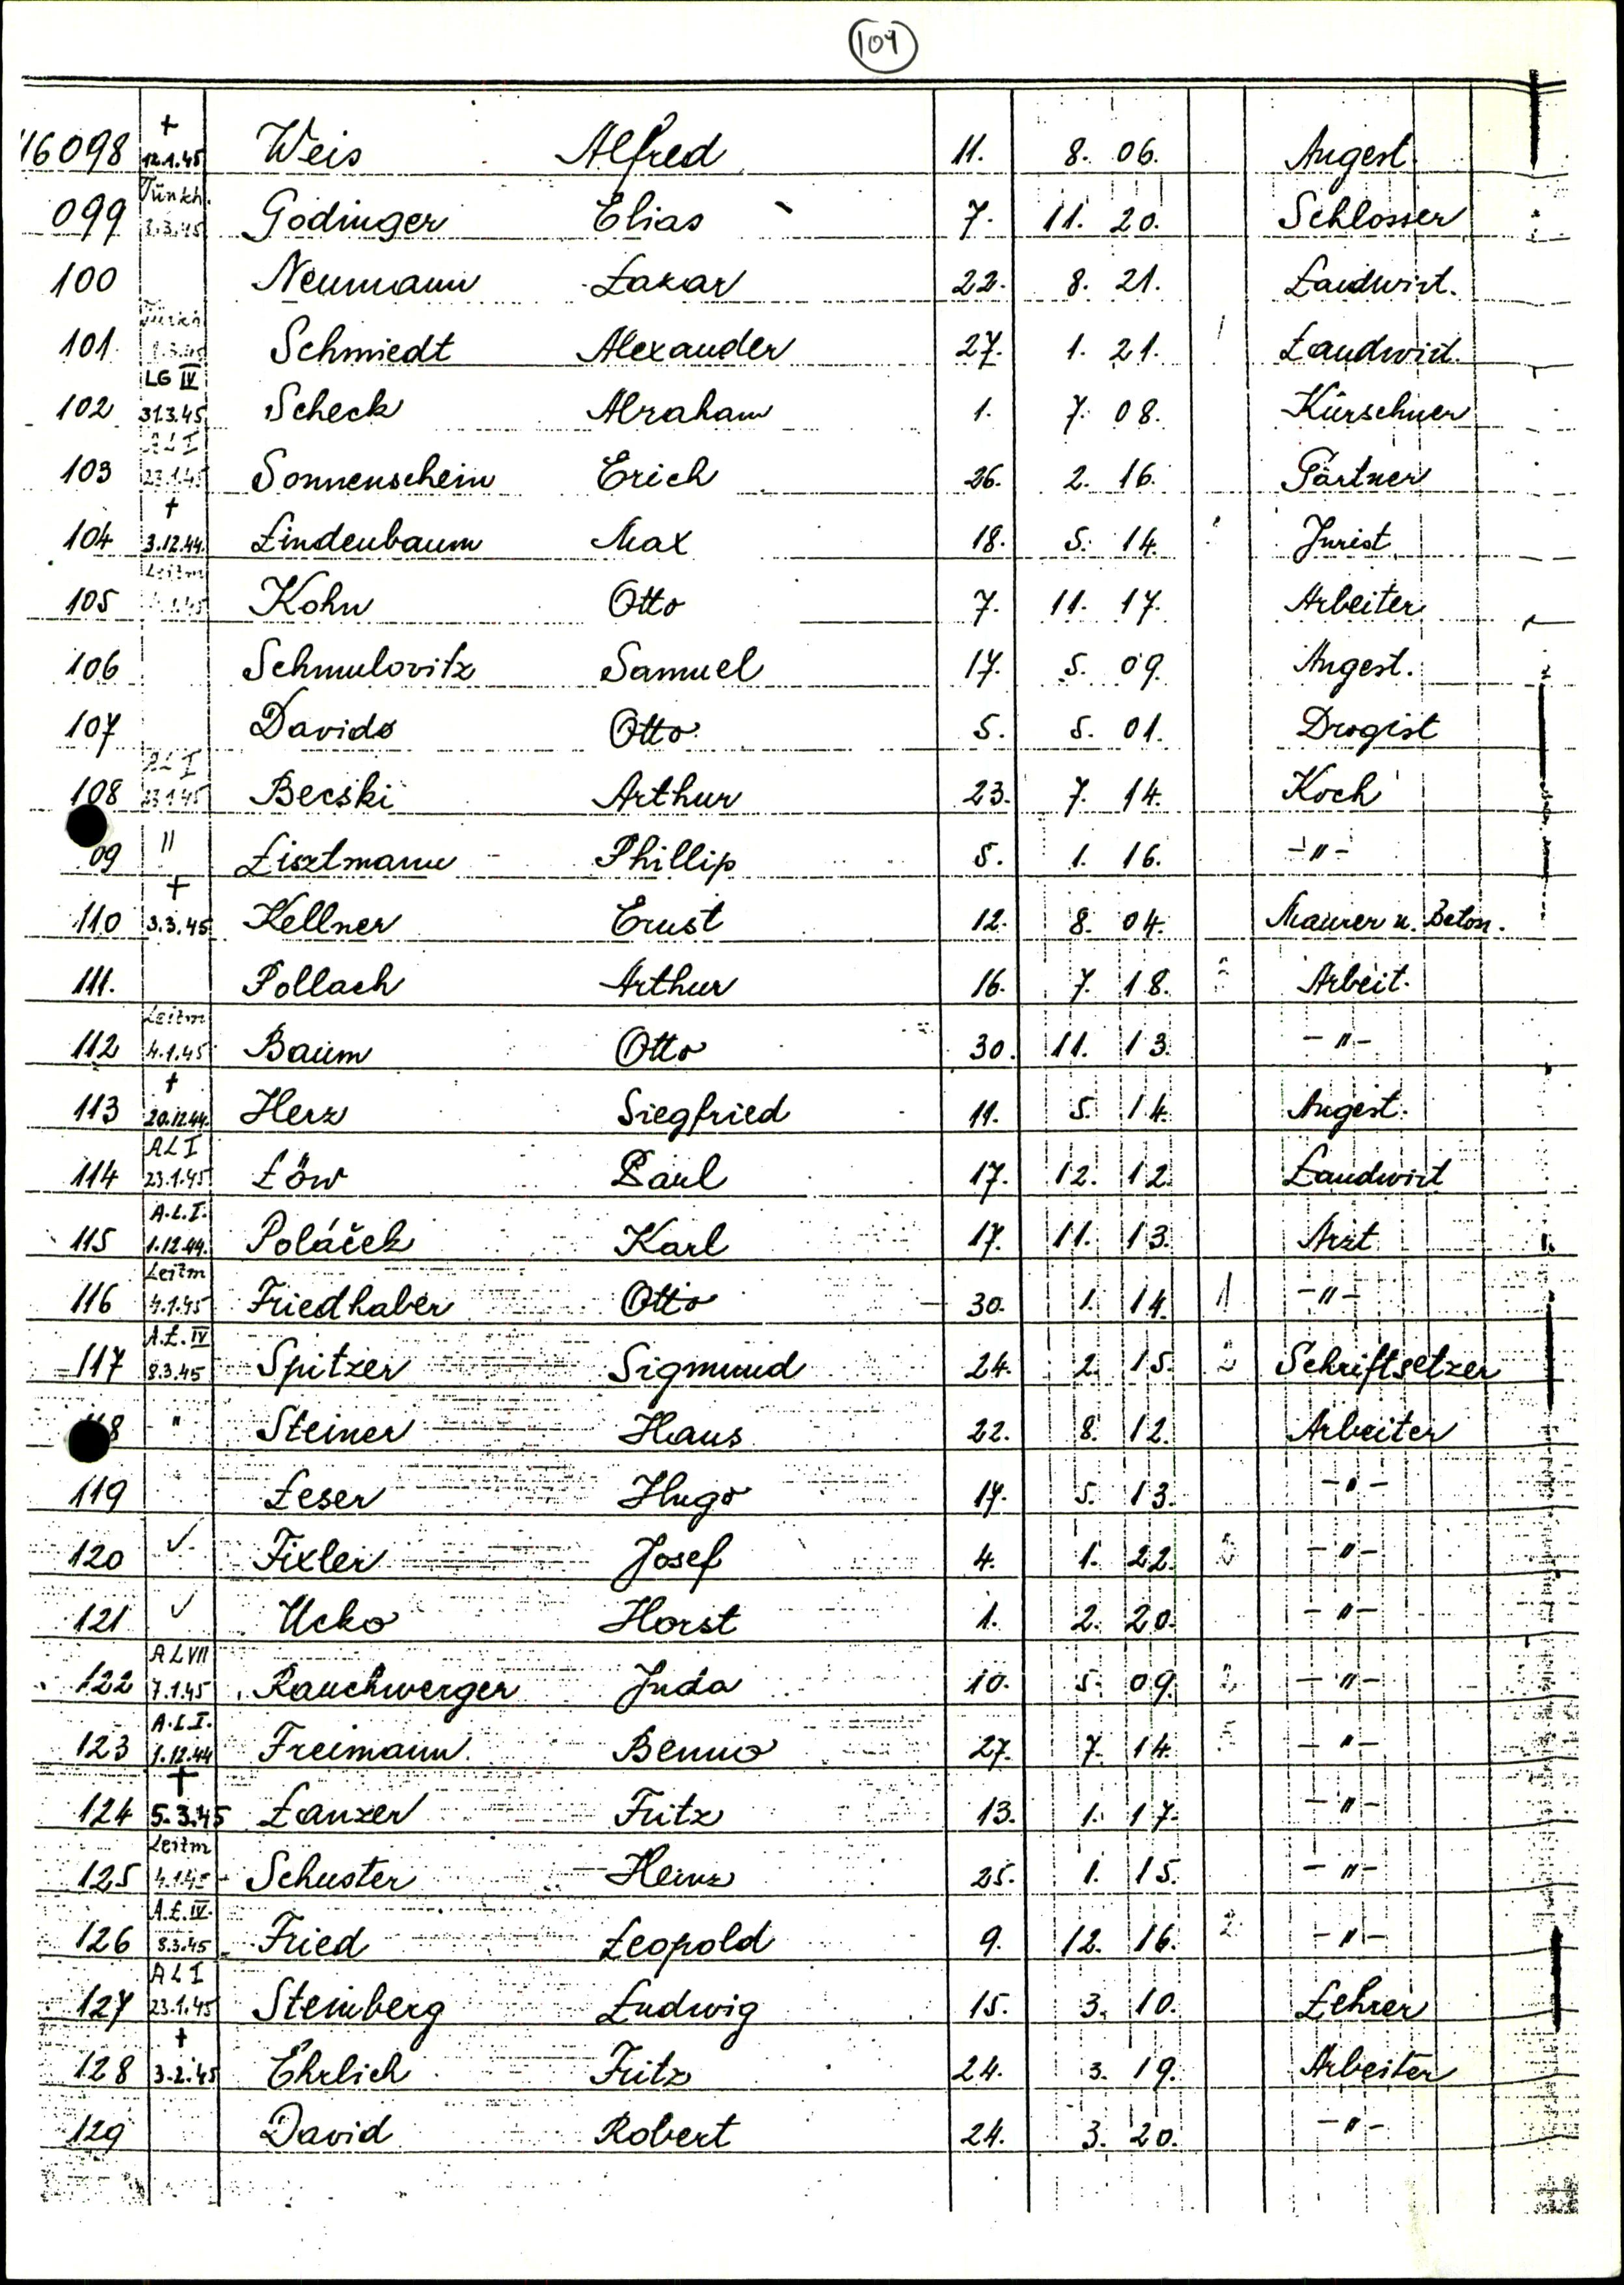 104
†
116098 12.1.45 Weis Alfred 11. 8. 06. Angest.
Türkh.
099 3.3.45 Godinger Elias 7. 11. 20. Schlosser
100 Neumann Lazar 22. 8. 21. Landwirt.
Türkh
101 Schmiedt Alexander 27. 1. 21. Landwirt.
LG IV
102 31.3.45 Scheck Abraham 1. 7. 08. Kürschner
AL I
103 23.1.45 Sonnenschein Erich 26. 2. 16. Gärtner
†
104 3.12.44. Lindenbaum Max 18. 5. 14. Jurist
Leitm
105 4.1.45 Kohn Otto 7. 11. 17. Arbeiter
106 Schmulovitz Samuel 17. 5. 09. Angest.
107 Davids Otto 5. 5. 01. Drogist
AL I
108 23.1.45 Becski Arthur 23. 7. 14. Koch
09 " Lisztmann Phillip 5. 1. 16. -"-
†
110 3.3.45 Kellner Ernst 12. 8. 04. Maurer u. Beton.
111. Pollach Arthur 16. 7. 18. Arbeit.
Leitm
112 4.1.45 Baum Otto 30. 11. 13. -"-
†
113 20.12.44. Herz Siegfried 11. 5. 14. Angest.
AL I
114 23.1.45 Löw Paul 17. 12. 12. Landwirt
A.L.I.
115 1.12.44. Poláček Karl 17. 11. 13. Arzt
Leitm
116 4.1.45 Friedhaber Otto 30. 1. 14. -"-
A.L. IV
117 8.3.45 Spitzer Sigmund 24. 2. 15. 2 Schriftsetzer
118 " Steiner Hans 22. 8. 12. Arbeiter
119 Leser Hugo 17. 5. 13. -"-
120 ✓ Fixler Josef 4. 1. 22. -"-
121 ✓ Ucko Horst 1. 2. 20. -"-
AL VII
122 7.1.45 Rauchwerger Juda 10. 5. 09. 2 -"-
A.L.I.
123 1.12.44 Freimann Benno 27. 7. 14. -"-
†
124 5.3.45 Lanzer Fritz 13. 1. 17. -"-
Leitm
125 4.1.45 Schuster Heinz 25. 1. 15. -"-
A.L. IV.
126 8.3.45 Fried Leopold 9. 12. 16. 2 -"-
AL I
127 23.1.45 Steinberg Ludwig 15. 3. 10. Lehrer
†
128 3.2.45 Ehrlich Fritz 24. 3. 19. Arbeiter
129 David Robert 24. 3. 20. -"-